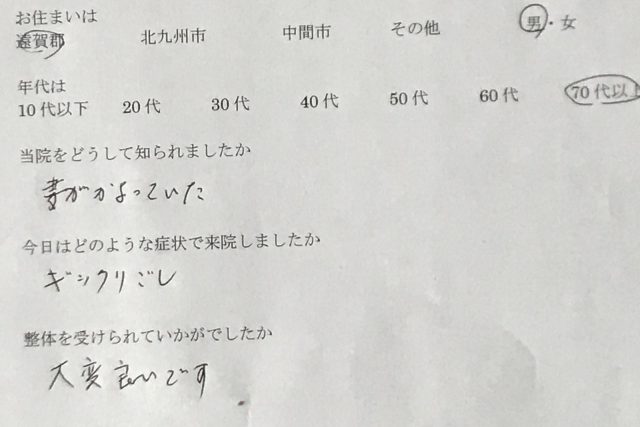 お住まいは
遠賀郡 北九州市 中間市 その他 男・女
年代は
10代以下 20代 30代 40代 50代 60代 70代以上
当院をどうして知られましたか
妻がかよっていた
今日はどのような症状で来院しましたか
ギックリごし
整体を受けられていかがでしたか
大変良いです